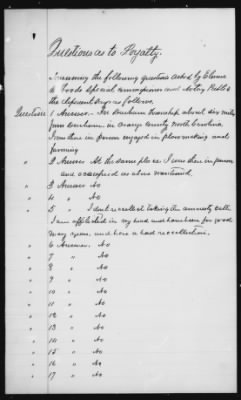 Questions as to Loyalty.
Answering the following questions asked by Elanor
A Goods Special commissioner and Notary Public
the deponent says as follows.
Question 1 Answer.- In Durham Township about six miles
from Durham in Orange County North Carolina
I was there in person engaged in plow making and
farming
" 2 Answer At the same place. I was there in person
and occupied as above mentioned.
" 3 Answer No
" 4 " No
" 5 " I dont recollect taking the amnesty oath
I am afflicted in my head and have been for good
many years, and have a bad recollection.
" 6 Answer. No
" 7 " No
" 8 " No
" 9 " No
" 10 " No
" 11 " No
" 12 " No
" 13 " No
" 14 " No
" 15 " No
" 16 " No
" 17 " No